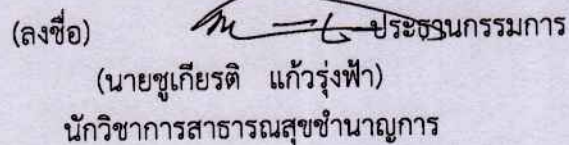 (ลงชื่อ) ประธานกรรมการ
(นายชูเกียรติ แก้วรุ่งฟ้า)
นักวิชาการสาธารณสุขชำนาญการ